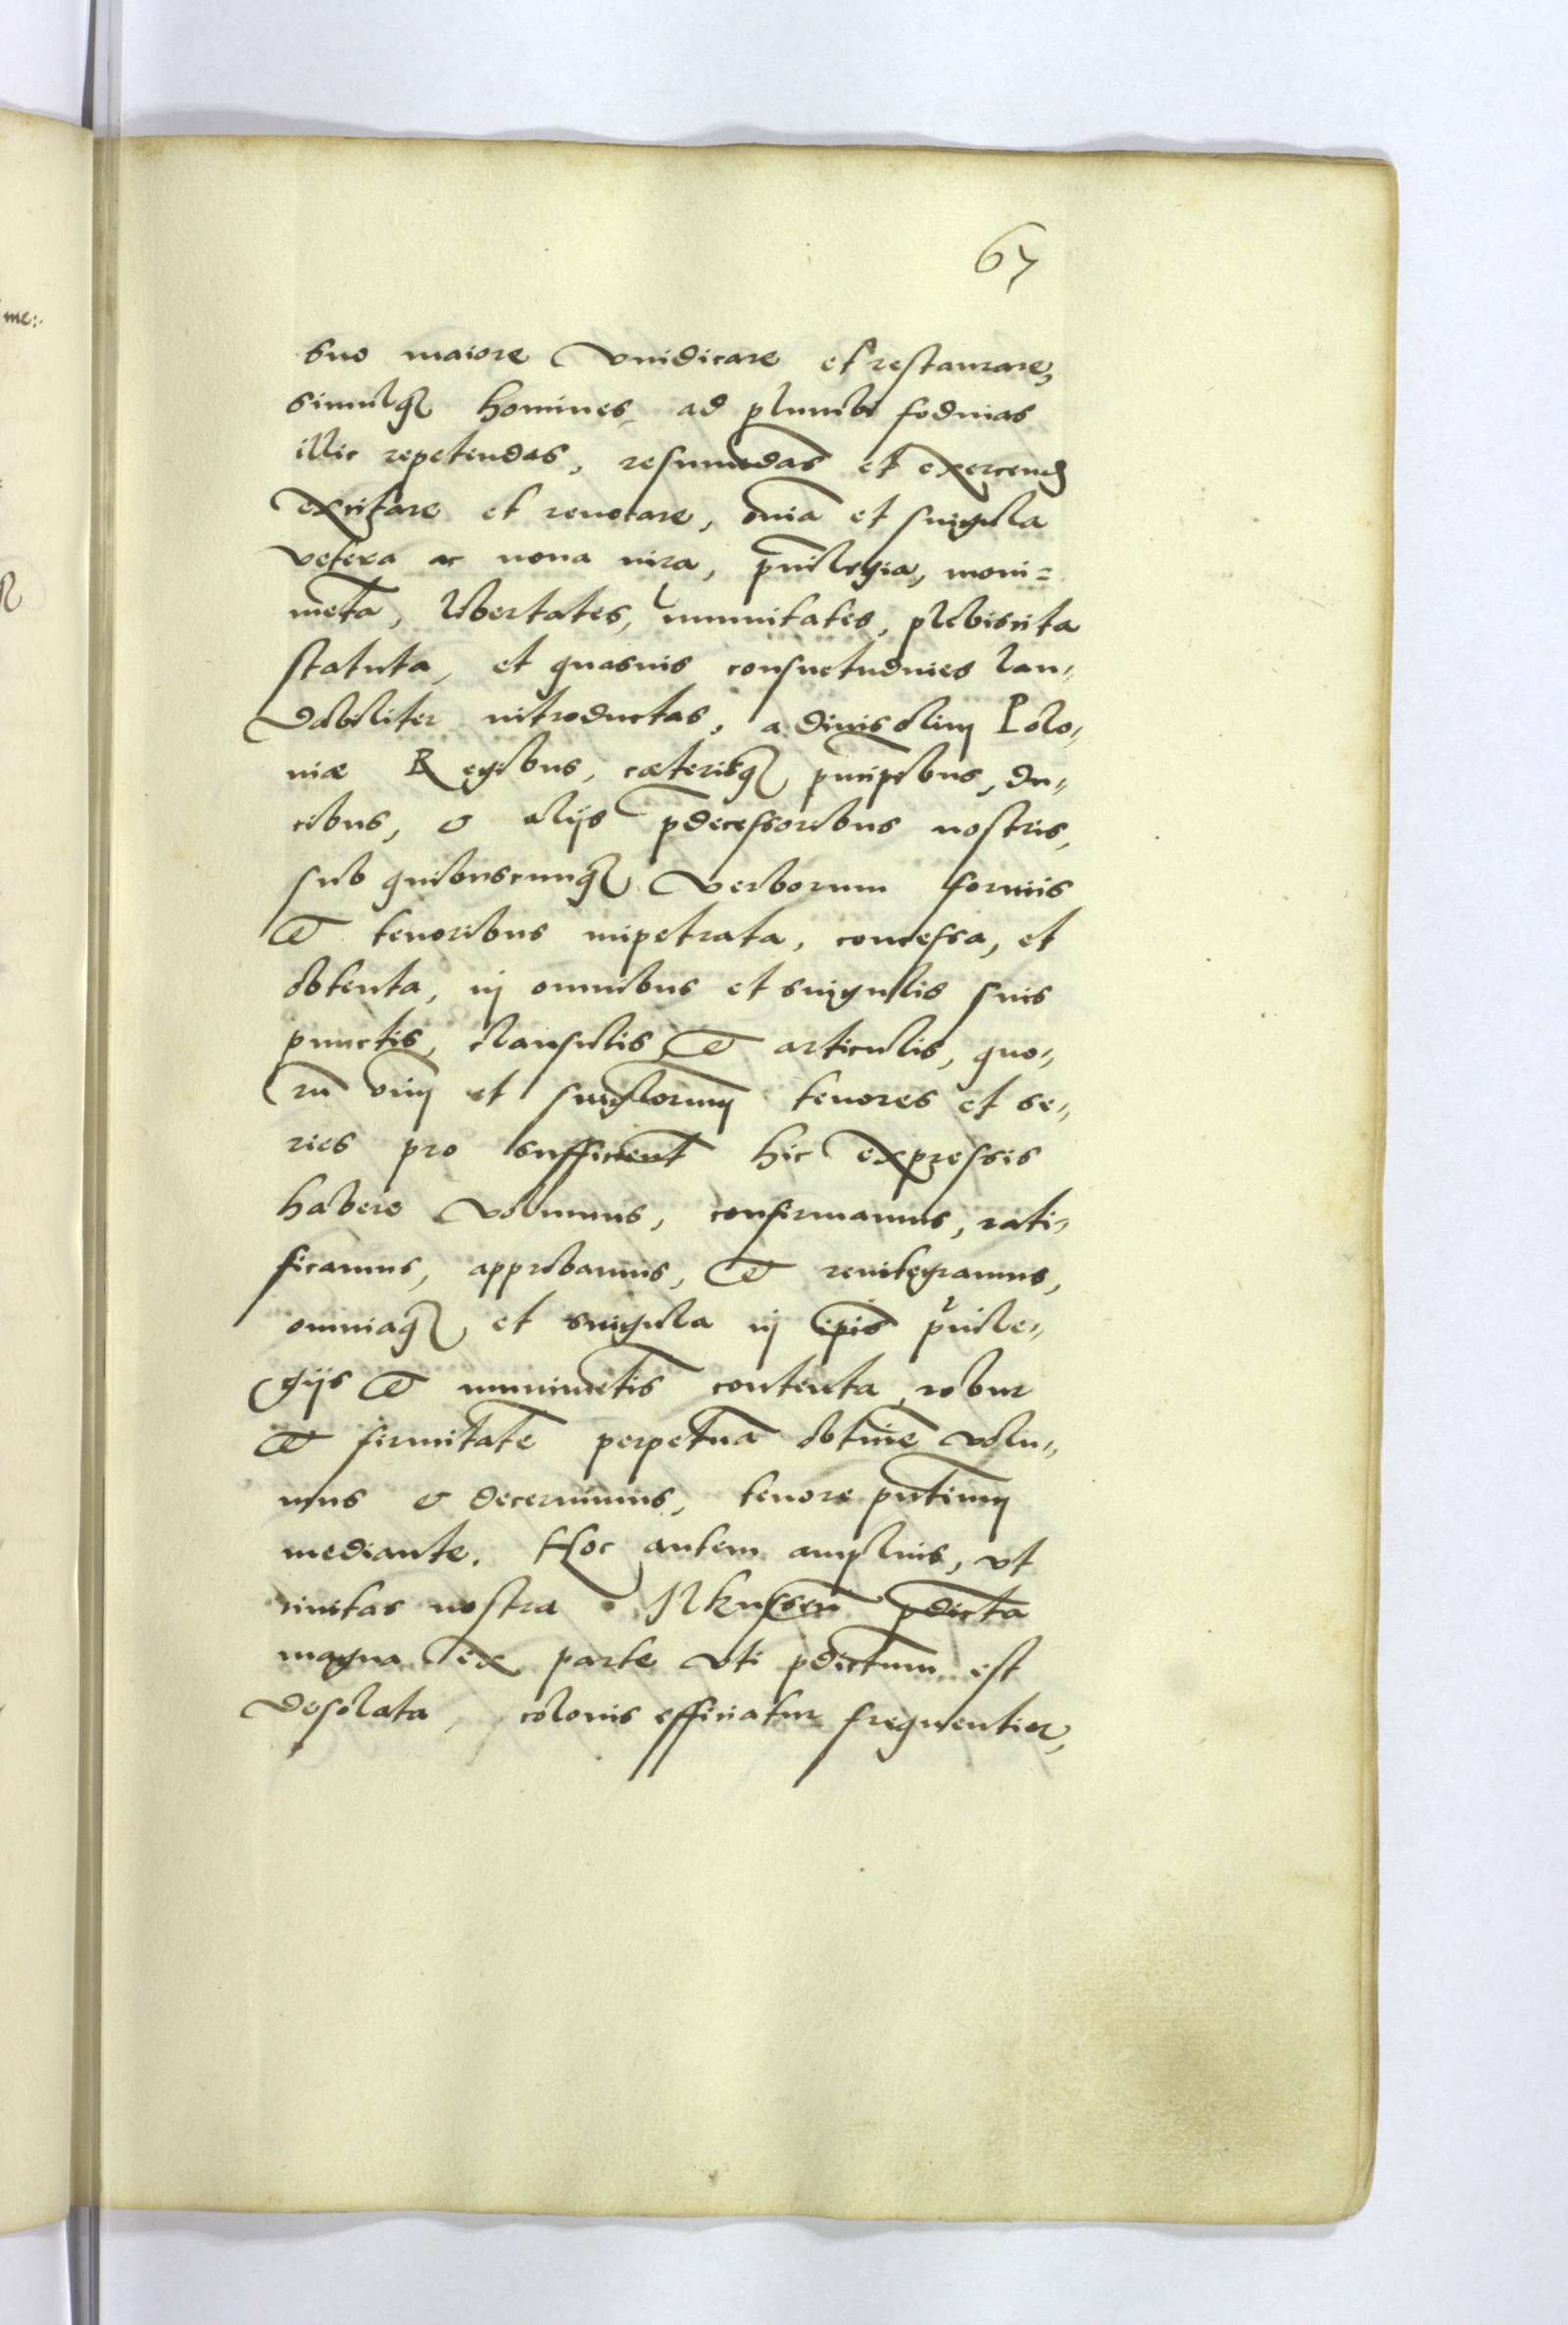 67
suo maiore vnidicare et restaurare,
simulq₃ homines, ad plumbi fodinas
illic repetendas, resumēdas et exercend
excitare et reuocare, oīa et singula
vetera ac noua iura, priuilegia, moni=
mēta, libertates, immunitates, plebiscita
statuta, et quasuis consuetudines lau,,
dabiliter introductas, a diuis olim Polo,,
niæ Regibus, cæterisq₃ principibus, du,,
cibus, & alijs p̄decessoribus nostris,
sub quibuscunq₃ verborum formis
et tenoribus impetrata, concessa, et
obtenta, in omnibus et singulis suis
punctis, clausulis et articulis, quo,,
rū oīm et singlorum tenores et se,,
ries pro sufficient hic expressis
habere volumus, confirmamus, rati,,
ficamus, approbamus, et reintegramus,
omniaq₃ et singula in ip̄is priuile,,
gijs et munimētis contenta, robur
et firmitatē perpetuā obtinē volu,,
mus & decernimus, tenore p̄ntium
mediante. Hoc autem amplius, vt
ciuitas nostra Ilkussen p̄dicta
magna ex parte vti p̄dictum est
desolata, colonis efficiatur frequentior,
me: